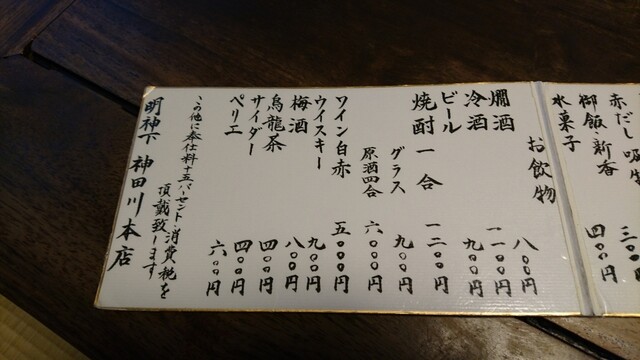 赤だし 吸物 三〇〇円
御飯・新香 四〇〇円
水菓子
お飲物
燗酒 八〇〇円
冷酒 一一〇〇円
ビール 九〇〇円
焼酎 一合 一二〇〇円
グラス 九〇〇円
原酒四合 六〇〇〇円
ワイン白赤 五〇〇〇円
ウイスキー 九〇〇円
梅酒 八〇〇円
烏龍茶 四〇〇円
サイダー 四〇〇円
ペリエ 六〇〇円
この他に奉仕料十五パーセント・消費税を
頂戴致します
明神下 神田川本店